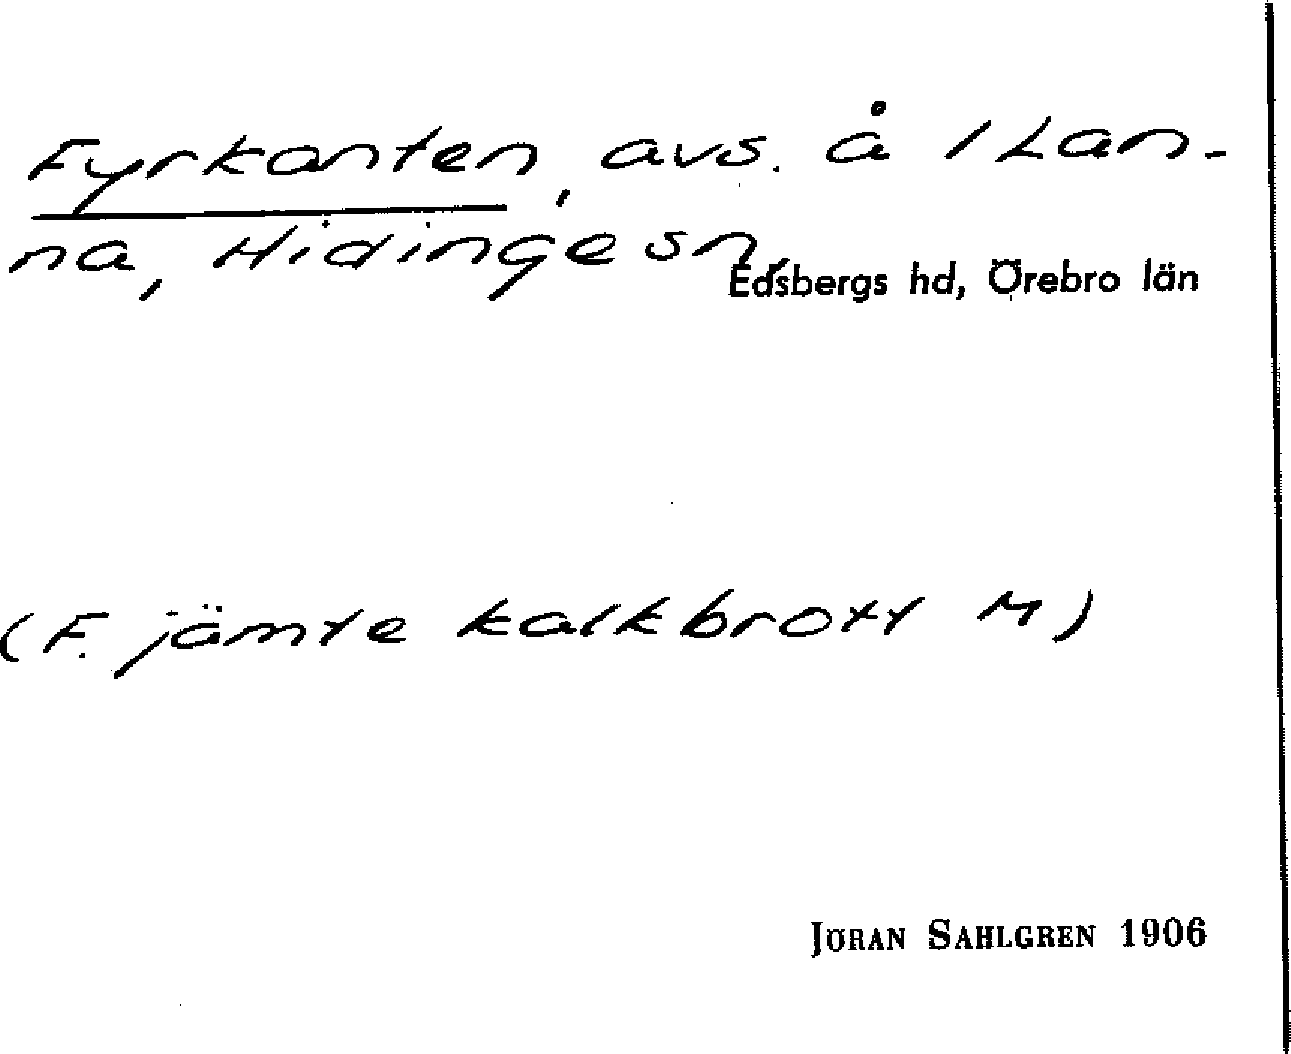 Fyrkanten, avs. å 1 Lan-
na, Hidinge sn,
Edsbergs hd, Örebro län
(F. jämte kalkbrott M)
JÖRAN SAHLGREN 1906